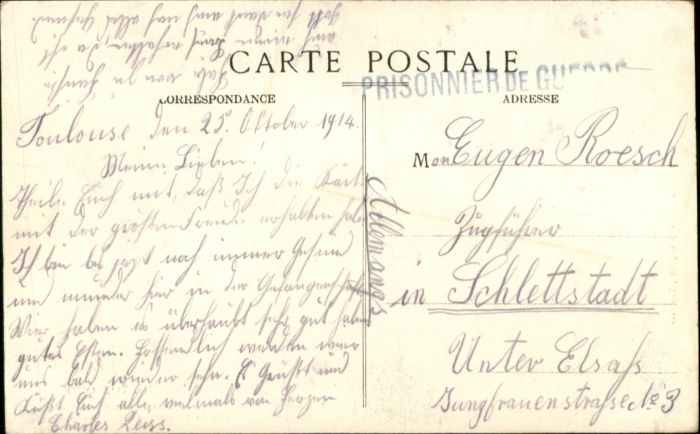 CARTE POSTALE
PRISONNIER DE GUERRE
CORRESPONDANCE
ADRESSE
Toulouse den 25. Oktober 1914.
Meine Lieben!
Theile Euch mit, daß Ich die Kart
mit der größten Freude erhalten habe
Ich bin bis jetzt noch immer Gesund
und munter hier in der Gefangenschaft
Wier haben es überhaubt sehr gut haben
gutes Essen. Hoffendlich werden wier
uns bald wieder sehn. Es Grüßt und
Küßt Euch alle, vielmals von Herzen
Charles Reiss.
Allemangs
Mon Eugen Roesch
Zugführer
in Schlettstadt
Unter Elsaß
Jungfrauenstrasse No 3